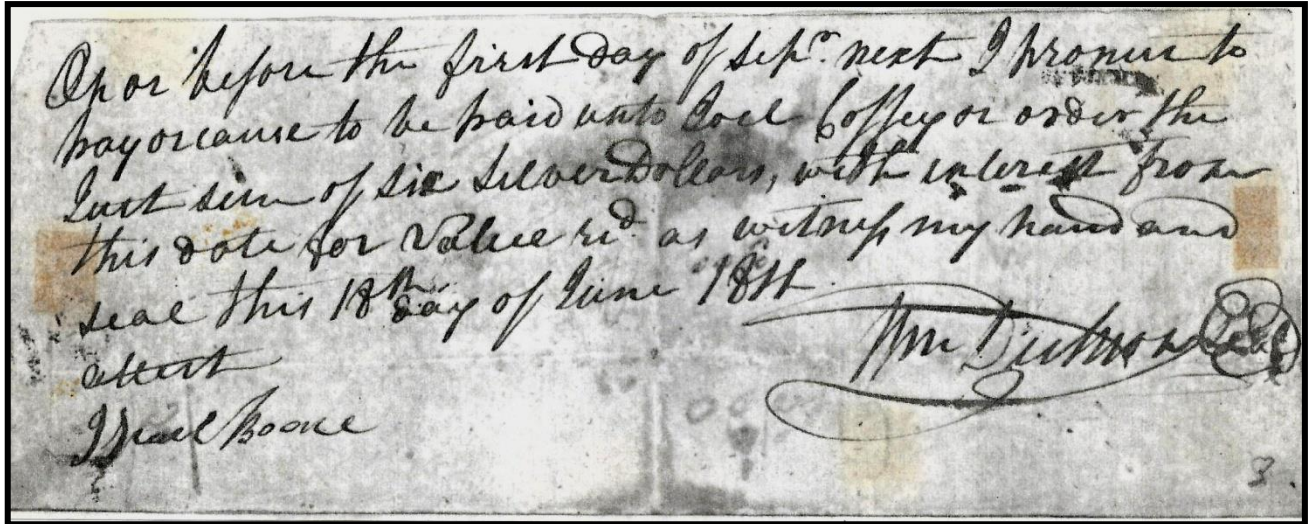 On or before the first day of Sepr. next I promis to
pay or cause to be paid unto Joel Coffey or order the
Just sum of six Silver Dollars, with interest from
this date for Value rd. as witness my hand and
seal this 18th day of June
attest Wm Seal
Israel Boone
3